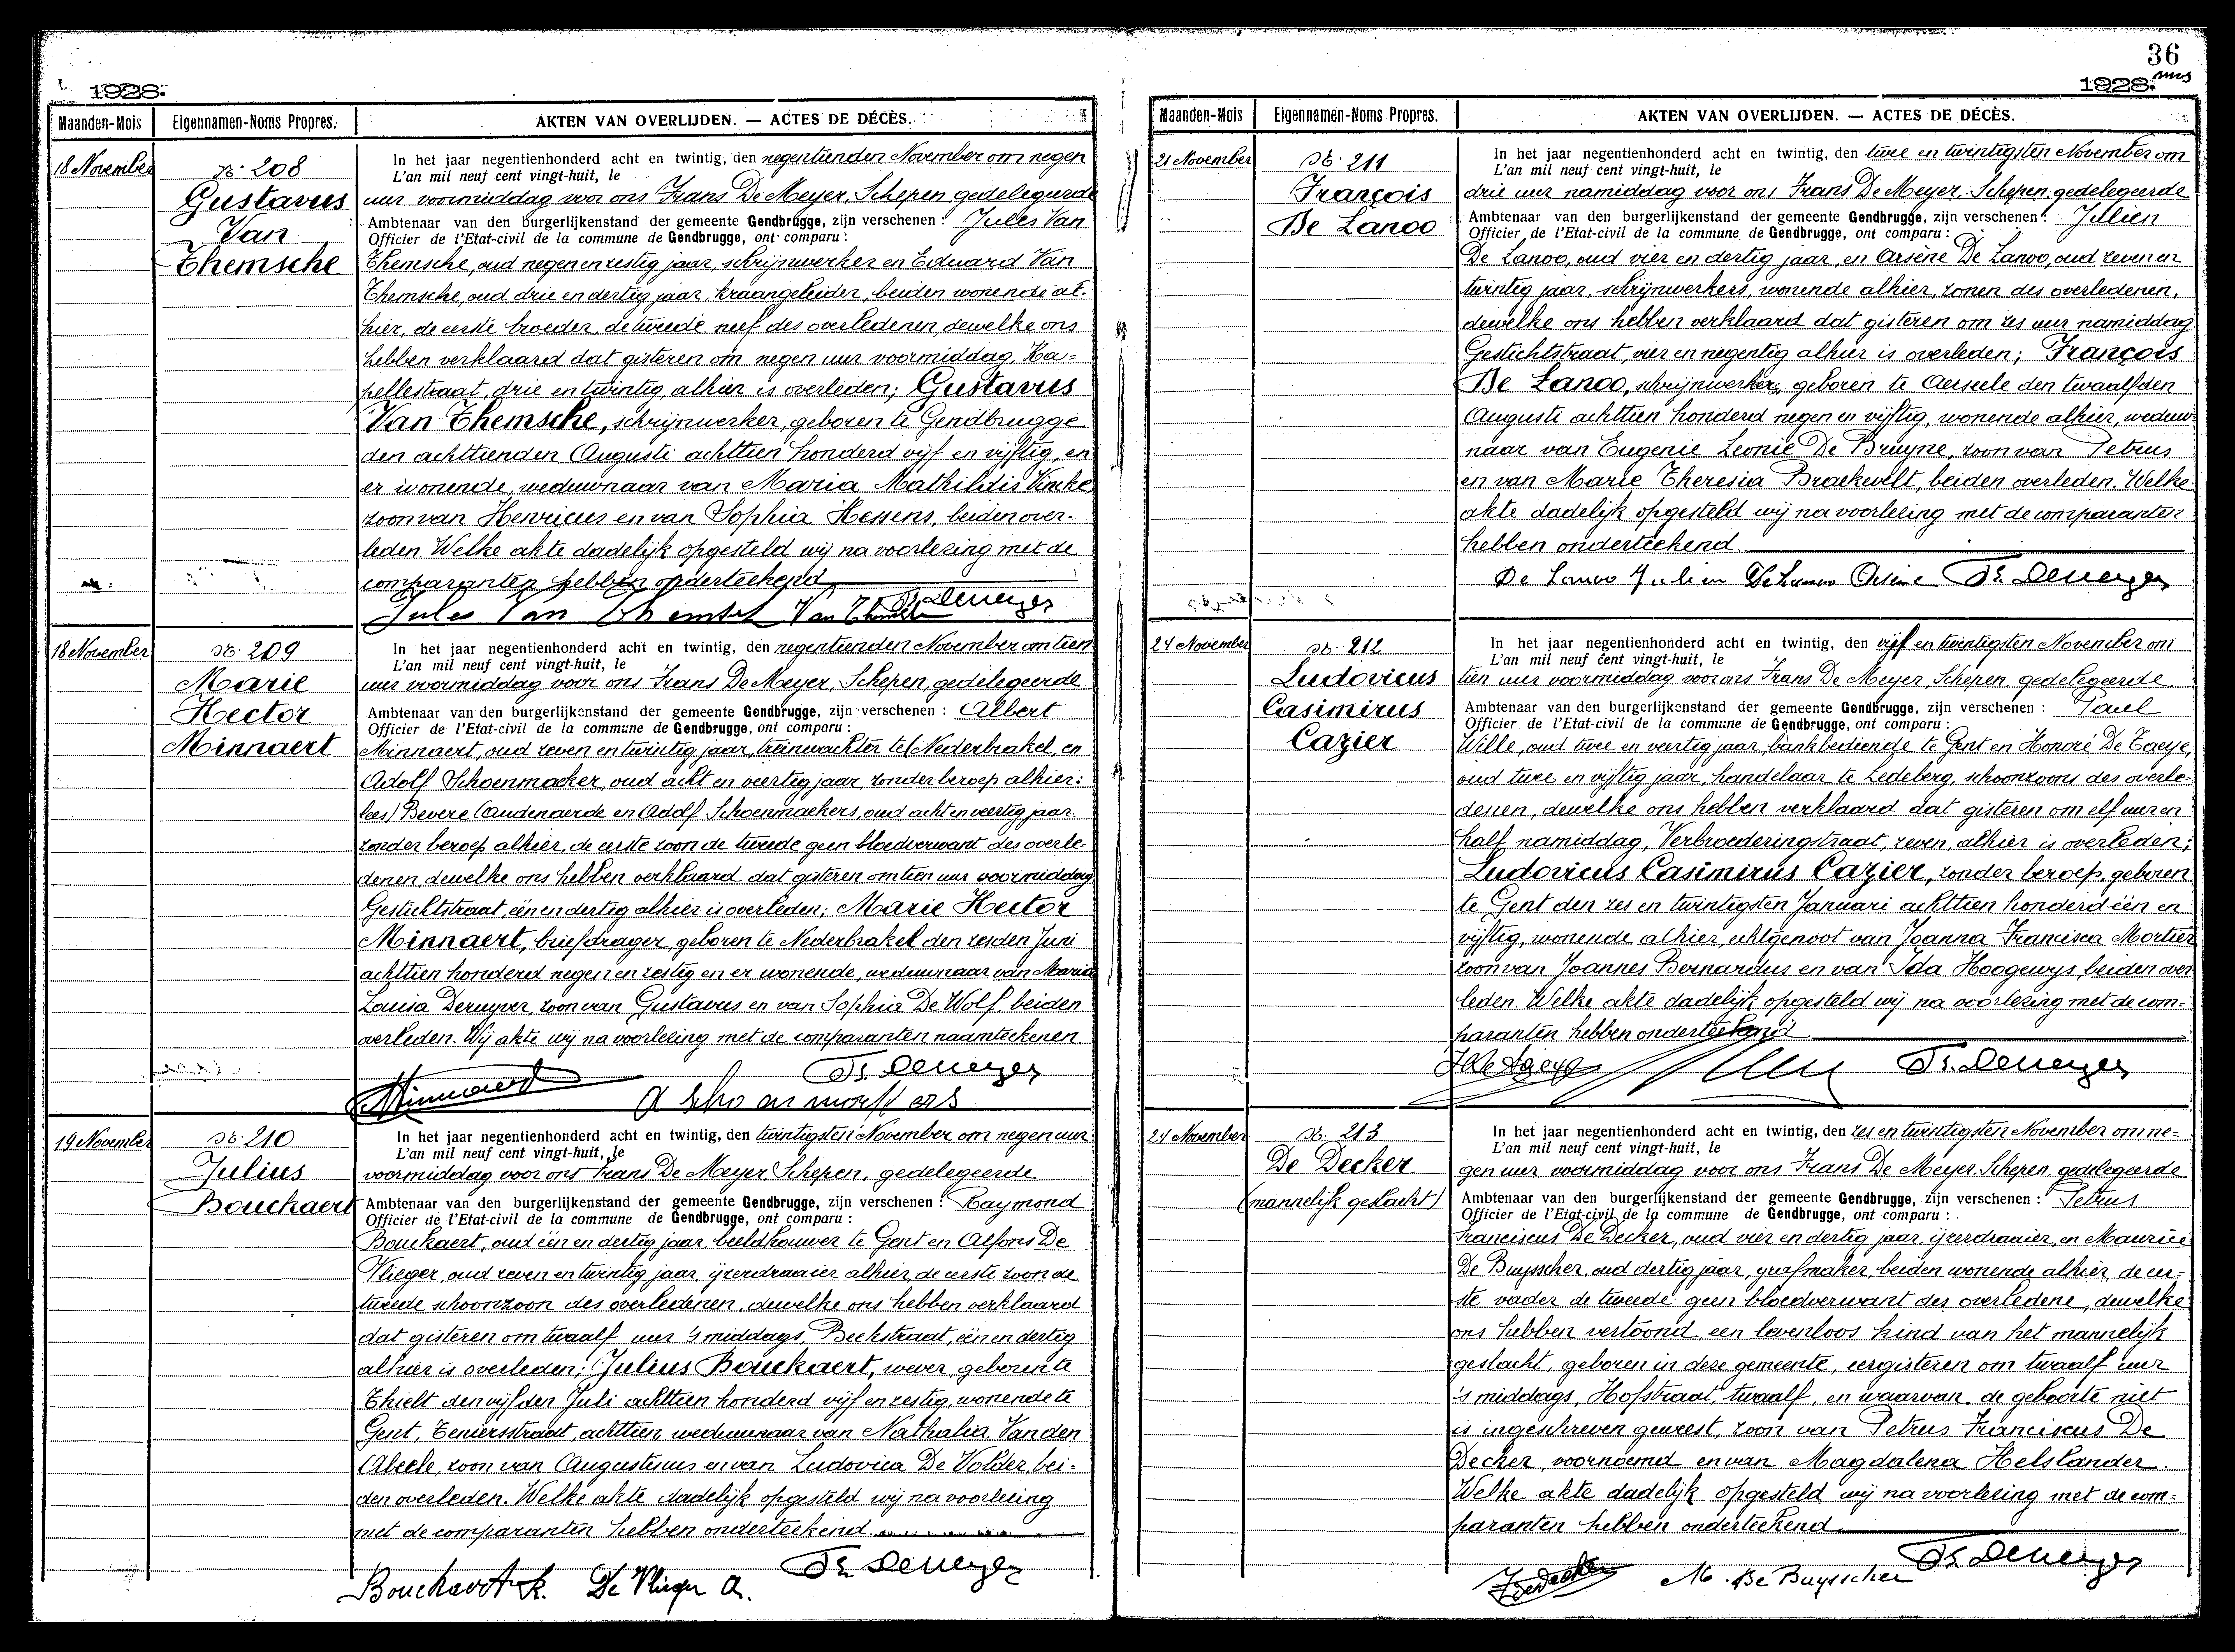 1928.
Maanden-Mois Eigennamen-Noms Propres. AKTEN VAN OVERLIJDEN. — ACTES DE DÉCÈS.
18 November
No. 208
Gustavus
Van
Themsche
In het jaar negentienhonderd acht en twintig, den negentienden November om negen
L'an mil neuf cent vingt-huit, le
uur voormiddag voor ons Frans De Meyer, Schepen, gedelegeerde
Ambtenaar van den burgerlijkenstand der gemeente Gendbrugge, zijn verschenen : Jules Van
Officier de l'Etat-civil de la commune de Gendbrugge, ont comparu :
Themsche, oud negen en zestig jaar, schrijnwerker en Eduard Van
Themsche, oud drie en dertig jaar, kraangeleider, beiden wonende al-
hier, de eerste broeder, de tweede neef des overledenen, dewelke ons
hebben verklaard dat gisteren om negen uur voormiddag, Ka=
pellestraat, drie en twintig, alhier is overleden; Gustavus
Van Themsche, schrijnwerker, geboren te Gendbrugge
den achttienden Augusti achttien honderd vijf en vijftig, en
er wonende, weduwnaar van Maria Mathildis Vincke
zoon van Henricus en van Sophia Hessens, beiden over-
leden. Welke akte dadelijk opgesteld wij na voorlezing met de
comparanten hebben onderteekend
Jules Van Themsche Van Themsche Fr. Demeyer
18 November
No. 209
Marie
Hector
Minnaert
In het jaar negentienhonderd acht en twintig, den negentienden November om tien
L'an mil neuf cent vingt-huit, le
uur voormiddag voor ons Frans De Meyer, Schepen, gedelegeerde
Ambtenaar van den burgerlijkenstand der gemeente Gendbrugge, zijn verschenen : Albert
Officier de l'Etat-civil de la commune de Gendbrugge, ont comparu :
Minnaert, oud zeven en twintig jaar, treinwachter te (Nederbrakel, en
Adolf Schoenmacker, oud acht en veertig jaar, zonder beroep alhier:
lees) Bevere Audenaerde en Adolf Schoenmaekers, oud acht en veertig jaar.
zonder beroep alhier, de eerste zoon de tweede geen bloedverwant des overle-
denen, dewelke ons hebben verklaard dat gisteren om tien uur voormiddag
Gestichtstraat, één en dertig alhier is overleden; Marie Hector
Minnaert, briefdrager, geboren te Nederbrakel den zesden Juni
achttien honderd negen en zestig en er wonende, weduwnaar van Maria
Louisa Deruyver, zoon van Gustavus en van Sophia De Wolf, beiden
overleden. Wij akte wij na voorlezing met de comparanten naamteekenen
Minnaert Fr. Demeyer
A Schoenmaekers
19 November
No. 210
Julius
Bouckaert
In het jaar negentienhonderd acht en twintig, den twintigsten November om negen uur
L'an mil neuf cent vingt-huit, le
voormiddag voor ons Frans De Meyer, Schepen, gedelegeerde
Ambtenaar van den burgerlijkenstand der gemeente Gendbrugge, zijn verschenen : Raymond
Officier de l'Etat-civil de la commune de Gendbrugge, ont comparu :
Bouckaert, oud één en dertig jaar, beeldhouwer te Gent en Alfons De
Vlieger, oud zeven en twintig jaar, ijzerdraaier alhier, de eerste zoon de
tweede schoonzoon des overledenen, dewelke ons hebben verklaard
dat gisteren om twaalf uur 's middags, Beekstraat, één en dertig
alhier is overleden; Julius Bouckaert, wever, geboren te
Thielt den vijfden Juli achttien honderd vijf en zestig, wonende te
Gent, Teniersstraat, achttien, weduwnaar van Nathalia Van den
Abeele, zoon van Augustinus en van Ludovica De Volder, bei-
den overleden. Welke akte dadelijk opgesteld wij na voorlezing
met de comparanten hebben onderteekend.
Bouckaert R. De Vlieger A. Fr. Demeyer
36
1928.
Maanden-Mois Eigennamen-Noms Propres. AKTEN VAN OVERLIJDEN. — ACTES DE DÉCÈS.
21 November
No. 211
François
De Lanoo
In het jaar negentienhonderd acht en twintig, den twee en twintigsten November om
L'an mil neuf cent vingt-huit, le
drie uur namiddag voor ons Frans De Meyer, Schepen, gedelegeerde
Ambtenaar van den burgerlijkenstand der gemeente Gendbrugge, zijn verschenen : Jillien
Officier de l'Etat-civil de la commune de Gendbrugge, ont comparu :
De Lanoo, oud vier en dertig jaar, en Arsène De Lanoo, oud zeven en
twintig jaar, schrijnwerkers, wonende alhier, zonen des overledenen,
dewelke ons hebben verklaard dat gisteren om zes uur namiddag
Gestichtstraat, vier en negentig alhier is overleden; François
De Lanoo, schrijnwerker, geboren te Aerseele den twaalfden
Augusti achttien honderd negen en vijftig, wonende alhier, weduw-
naar van Eugenie Leonie De Bruyne, zoon van Petrus
en van Marie Theresia Braekevelt, beiden overleden. Welke
akte dadelijk opgesteld wij na voorlezing met de comparanten
hebben onderteekend
De Lanoo Julien De Lanoo Arsène Fr. Demeyer
24 November
No. 212
Ludovicus
Casimirus
Cazier
In het jaar negentienhonderd acht en twintig, den vijf en twintigsten November om
L'an mil neuf cent vingt-huit, le
tien uur voormiddag voor ons Frans De Meyer, Schepen, gedelegeerde
Ambtenaar van den burgerlijkenstand der gemeente Gendbrugge, zijn verschenen : Paul
Officier de l'Etat-civil de la commune de Gendbrugge, ont comparu :
Wille, oud twee en veertig jaar, bankbediende te Gent en Honoré De Taeye,
oud twee en vijftig jaar, handelaar te Ledeberg, schoonzoons des overle-
denen, dewelke ons hebben verklaard dat gisteren om elf uur en
half namiddag, Verbroederingstraat, zeven, alhier is overleden;
Ludovicus Casimirus Cazier, zonder beroep, geboren
te Gent den zes en twintigsten Januari achttien honderd één en
vijftig, wonende alhier, echtgenoot van Joanna Francisca Mortier
zoon van Joannes Bernardus en van Ida Hoogewys, beiden over
leden. Welke akte dadelijk opgesteld wij na voorlezing met de com=
paranten hebben onderteekend
H De Taeye Fr. Demeyer
24 November
No. 213
De Decker
(mannelijk geslacht)
In het jaar negentienhonderd acht en twintig, den zes en twintigsten November om ne=
L'an mil neuf cent vingt-huit, le
gen uur voormiddag voor ons Frans De Meyer, Schepen, gedelegeerde
Ambtenaar van den burgerlijkenstand der gemeente Gendbrugge, zijn verschenen : Petrus
Officier de l'Etat-civil de la commune de Gendbrugge, ont comparu :
Franciscus De Decker, oud vier en dertig jaar, ijzerdraaier, en Maurice
De Buysscher, oud dertig jaar, grafmaker, beiden wonende alhier, de eer-
ste vader de tweede geen bloedverwant des overledene, dewelke
ons hebben vertoond een levenloos kind van het mannelijk
geslacht, geboren in deze gemeente, eergisteren om twaalf uur
's middags, Hofstraat, twaalf, en waarvan de geboorte niet
is ingeschreven geweest, zoon van Petrus Franciscus De
Decker, voornoemd en van Magdalena Helslander.
Welke akte dadelijk opgesteld wij na voorlezing met de com=
paranten hebben onderteekend
Dedecker M. De Buysscher Fr. Demeyer